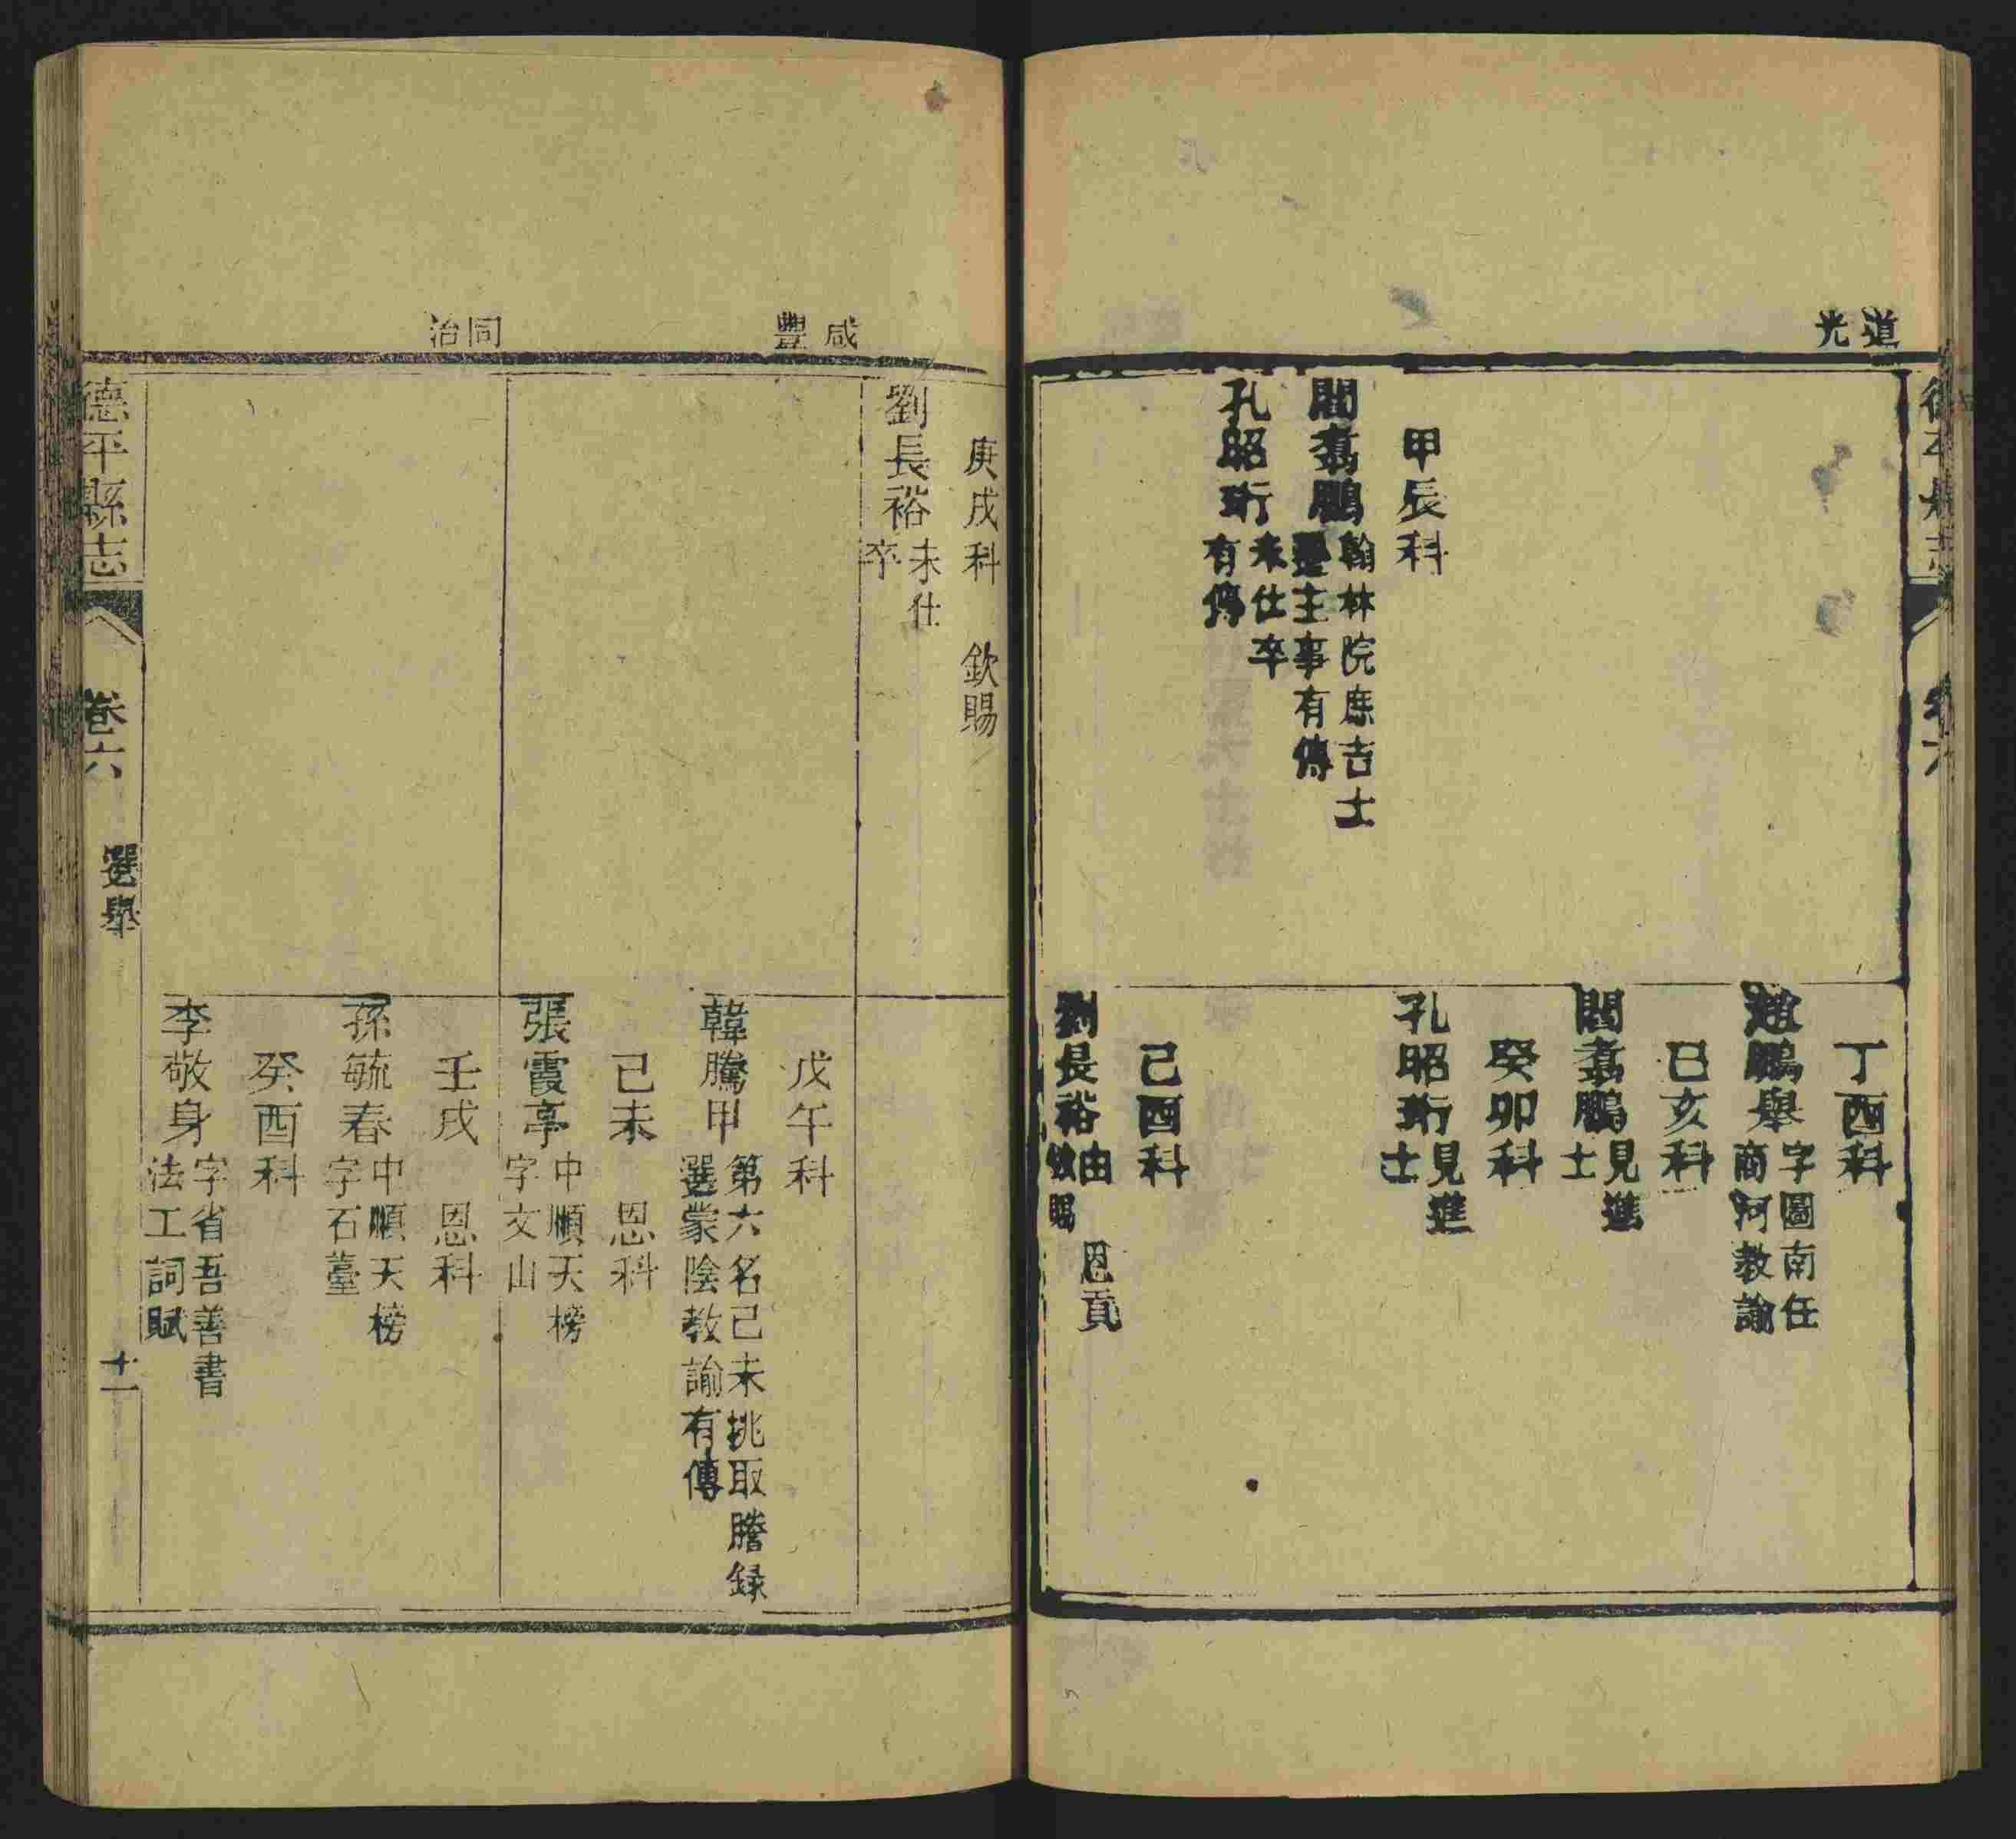 道光
甲辰科
閻翥鵬翰林院庶吉士
主事有傳
孔昭珩未仕卒
有傳
丁酉科
趙鵬舉字圖南任
商河教諭
己亥科
閻翥鵬見進
士
癸卯科
孔昭珩見進
士
己酉科
劉長裕由恩貢
欽賜
咸豐
同治
庚戌科 欽賜
劉長裕未仕
卒
戊午科
韓騰甲第六名己未挑取謄録
選蒙陰教諭有傳
己未恩科
張霞亭中順天榜
字文山
壬戌恩科
孫毓春中順天榜
字石臺
癸酉科
李敬身字省吾善書
法工詞賦
德平縣志 卷六 選舉 十一